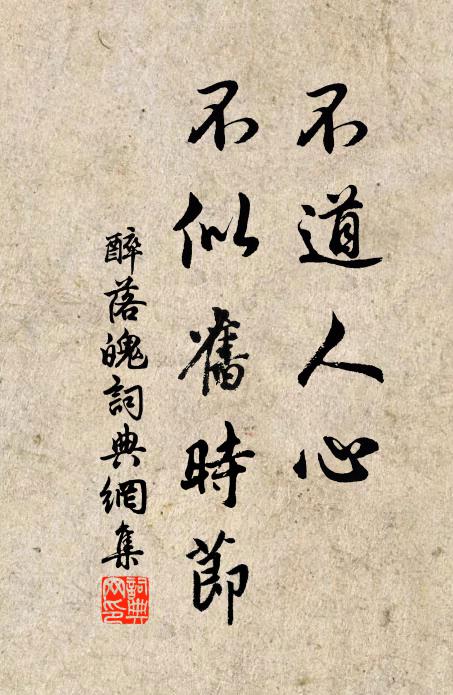 不道人心
不似舊時節
醉落魄詞典網集
詞典網印